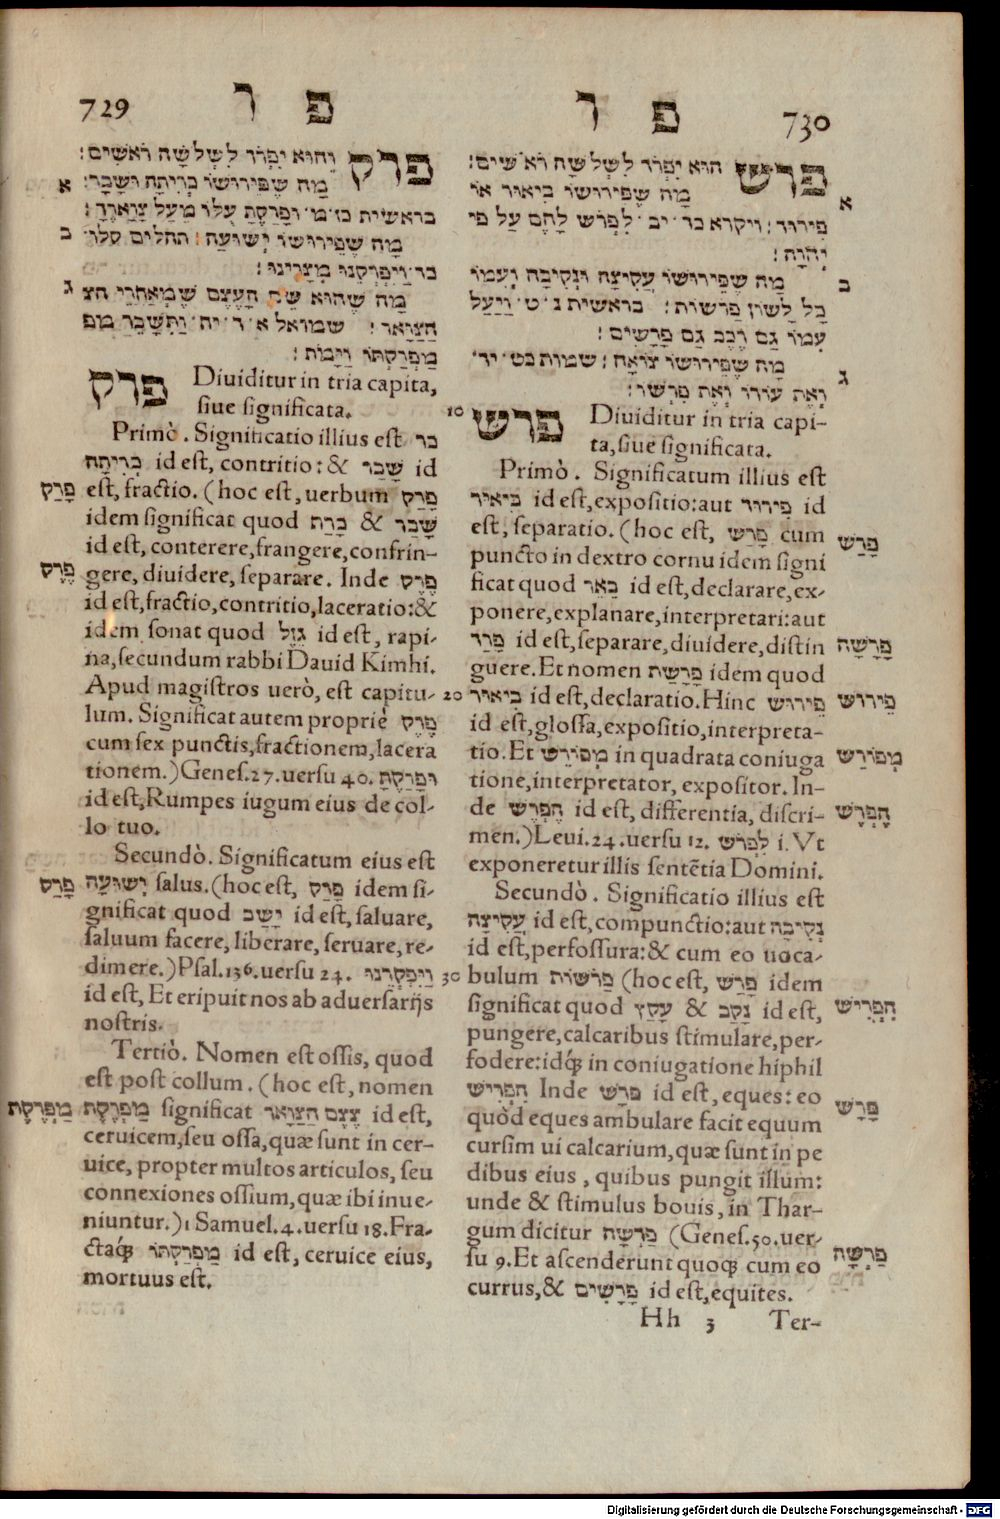 729 פ ר
פרק והוא יפרד לשלשה ראשים:
א מה שפירושו בריתה ושבר:
בראשית כז׳ מ׳ ופרקת עלו מעל צוארך:
ב מה שפירושו ישועה: תהלים קלו׳
כד׳ ויפרקנו מצרינו:
ג מה שהוא שם העצם שמאחרי הצ
הצואר: שמואל א׳ ד׳ יח׳ ותשבר מפ
מפרקתו וימות:
פרק Diuiditur in tria capita,
siue significata.
Primò. Significatio illius est בר
בריתה id est, contritio: & שבר id
פרק est, fractio. (hoc est, uerbum פרק
idem significat quod ברת & שבר
id est, conterere, frangere, confrin-
פרק gere, diuidere, separare. Inde פרק
id est, fractio, contritio, laceratio: &
idem sonat quod גזל id est, rapi-
na, secundum rabbi Dauid Kimhi.
Apud magistros uerò, est capitu-
lum. Significat autem propriè פרק
cum sex punctis, fractionem, lacera
tionem.) Genes. 27. uersu 40. ופרקת
id est, Rumpes iugum eius de col-
lo tuo.
Secundò. Significatum eius est
פרק ישועה salus. (hoc est, פרק idem si-
gnificat quod ישב id est, saluare,
saluum facere, liberare, seruare, re-
dimere.) Psal. 136. uersu 24. ויפקרנו
id est, Et eripuit nos ab aduersarijs
nostris.
Tertiò. Nomen est ossis, quod
est post collum. (hoc est, nomen
מפרקת מפרקת significat עצם הצואר id est,
ceruicem, seu ossa, quæ sunt in cer-
uice, propter multos articulos, seu
connexiones ossium, quæ ibi inue-
niuntur.) 1 Samuel. 4. uersu 18. Fra-
ctaq́ꝫ מפרקתו id est, ceruice eius,
mortuus est.
730 פ ר
פרש הוא יפרד לשלשה ראשים:
א מה שפירושו ביאור או
פירוד: ויקרא כד׳ יב׳ לפרש להם על פי
יהוה:
ב מה שפירושו עקיצה ונקיבה ועמו
כל לשון פרשות: בראשית נ׳ ט׳ ויעל
עמו גם רכב גם פרשים:
ג מה שפירושו צואה: שמות כט׳ יד׳
ואת עורו ואת פרשו:
10 פרש Diuiditur in tria capi-
ta, siue significata.
Primò. Significatum illius est
ביאור id est, expositio: aut פירוד id
פרש est, separatio. (hoc est, פרש cum
puncto in dextro cornu idem signi
ficat quod באר id est, declarare, ex-
ponere, explanare, interpretari: aut
פרשה פרד id est, separare, diuidere, distin
guere. Et nomen פרשת idem quod
20 פירוש ביאור id est, declaratio. Hinc פירוש
id est, glossa, expositio, interpreta-
מפורש tio. Et מפורש in quadrata coniuga
tione, interpretator, expositor. In-
הפרש de הפרש id est, differentia, discri-
men.) Leui. 24. uersu 12. לפרש i. Vt
exponeretur illis sentẽtia Domini.
Secundò. Significatio illius est
עקיצה id est, compunctio: aut נקיבה
id est, perfossura: & cum eo uoca-
30 bulum פרשות (hoc est, פרש idem
הפריש significat quod נקב & עקץ id est,
pungere, calcaribus stimulare, per-
fodere: idq́ꝫ in coniugatione hiphil
פרש הפריש Inde פרש id est, eques: eo
quòd eques ambulare facit equum
cursim ui calcarium, quæ sunt in pe
dibus eius, quibus pungit illum:
unde & stimulus bouis, in Thar-
פרשה gum dicitur פרשה (Genes. 50. uer-
su 9. Et ascenderunt quoqꝫ cum eo
currus, & פרשים id est, equites.
Hh 3 Ter-
Digitalisierung gefördert durch die Deutsche Forschungsgemeinschaft - DFG